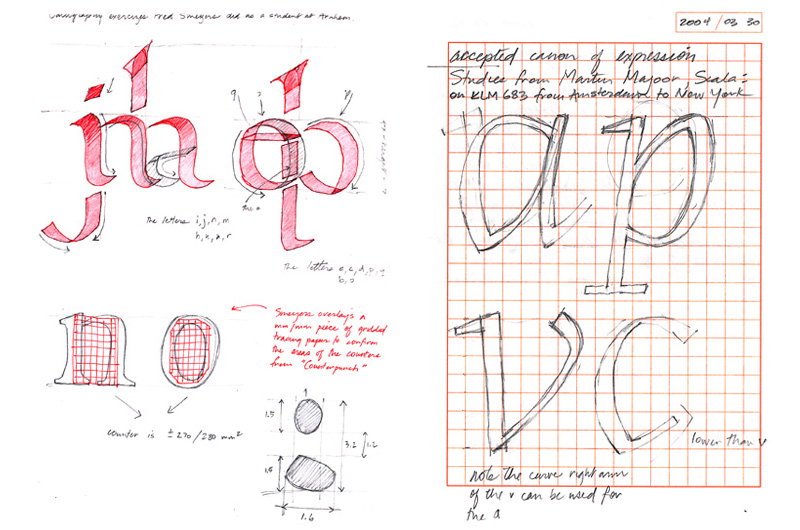 exercises Fred Smeijers did as a student at Arnhem.
the letters i, j, n, m
h, u, k, r
the letters o, c, d, p, q
b,
the o
Smeijers overlays a
mm/mm piece of gridded
tracing paper to confirm
the areas of the counters
from "Counterpunch"
counter is ± 270 / 280 mm²
1.5
3.2
1.2
1.5
1.6
2004 / 03 30
accepted canon of expression
Studies from Martin Majoor Scala:
on KLM 683 from Amsterdam to New York
a p
v c
lower than v
note the curve right arm
of the v can be used for
the a